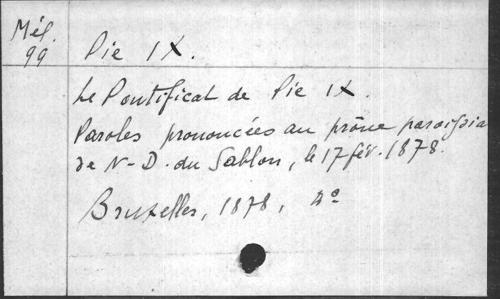 Mél.
99
Pie IX.
Le Pontificat de Pie IX.
Paroles prononcées au prône paroissia
de N-D. du Sablon, le 17 fév. 1878.
Bruxelles, 1878, 4°